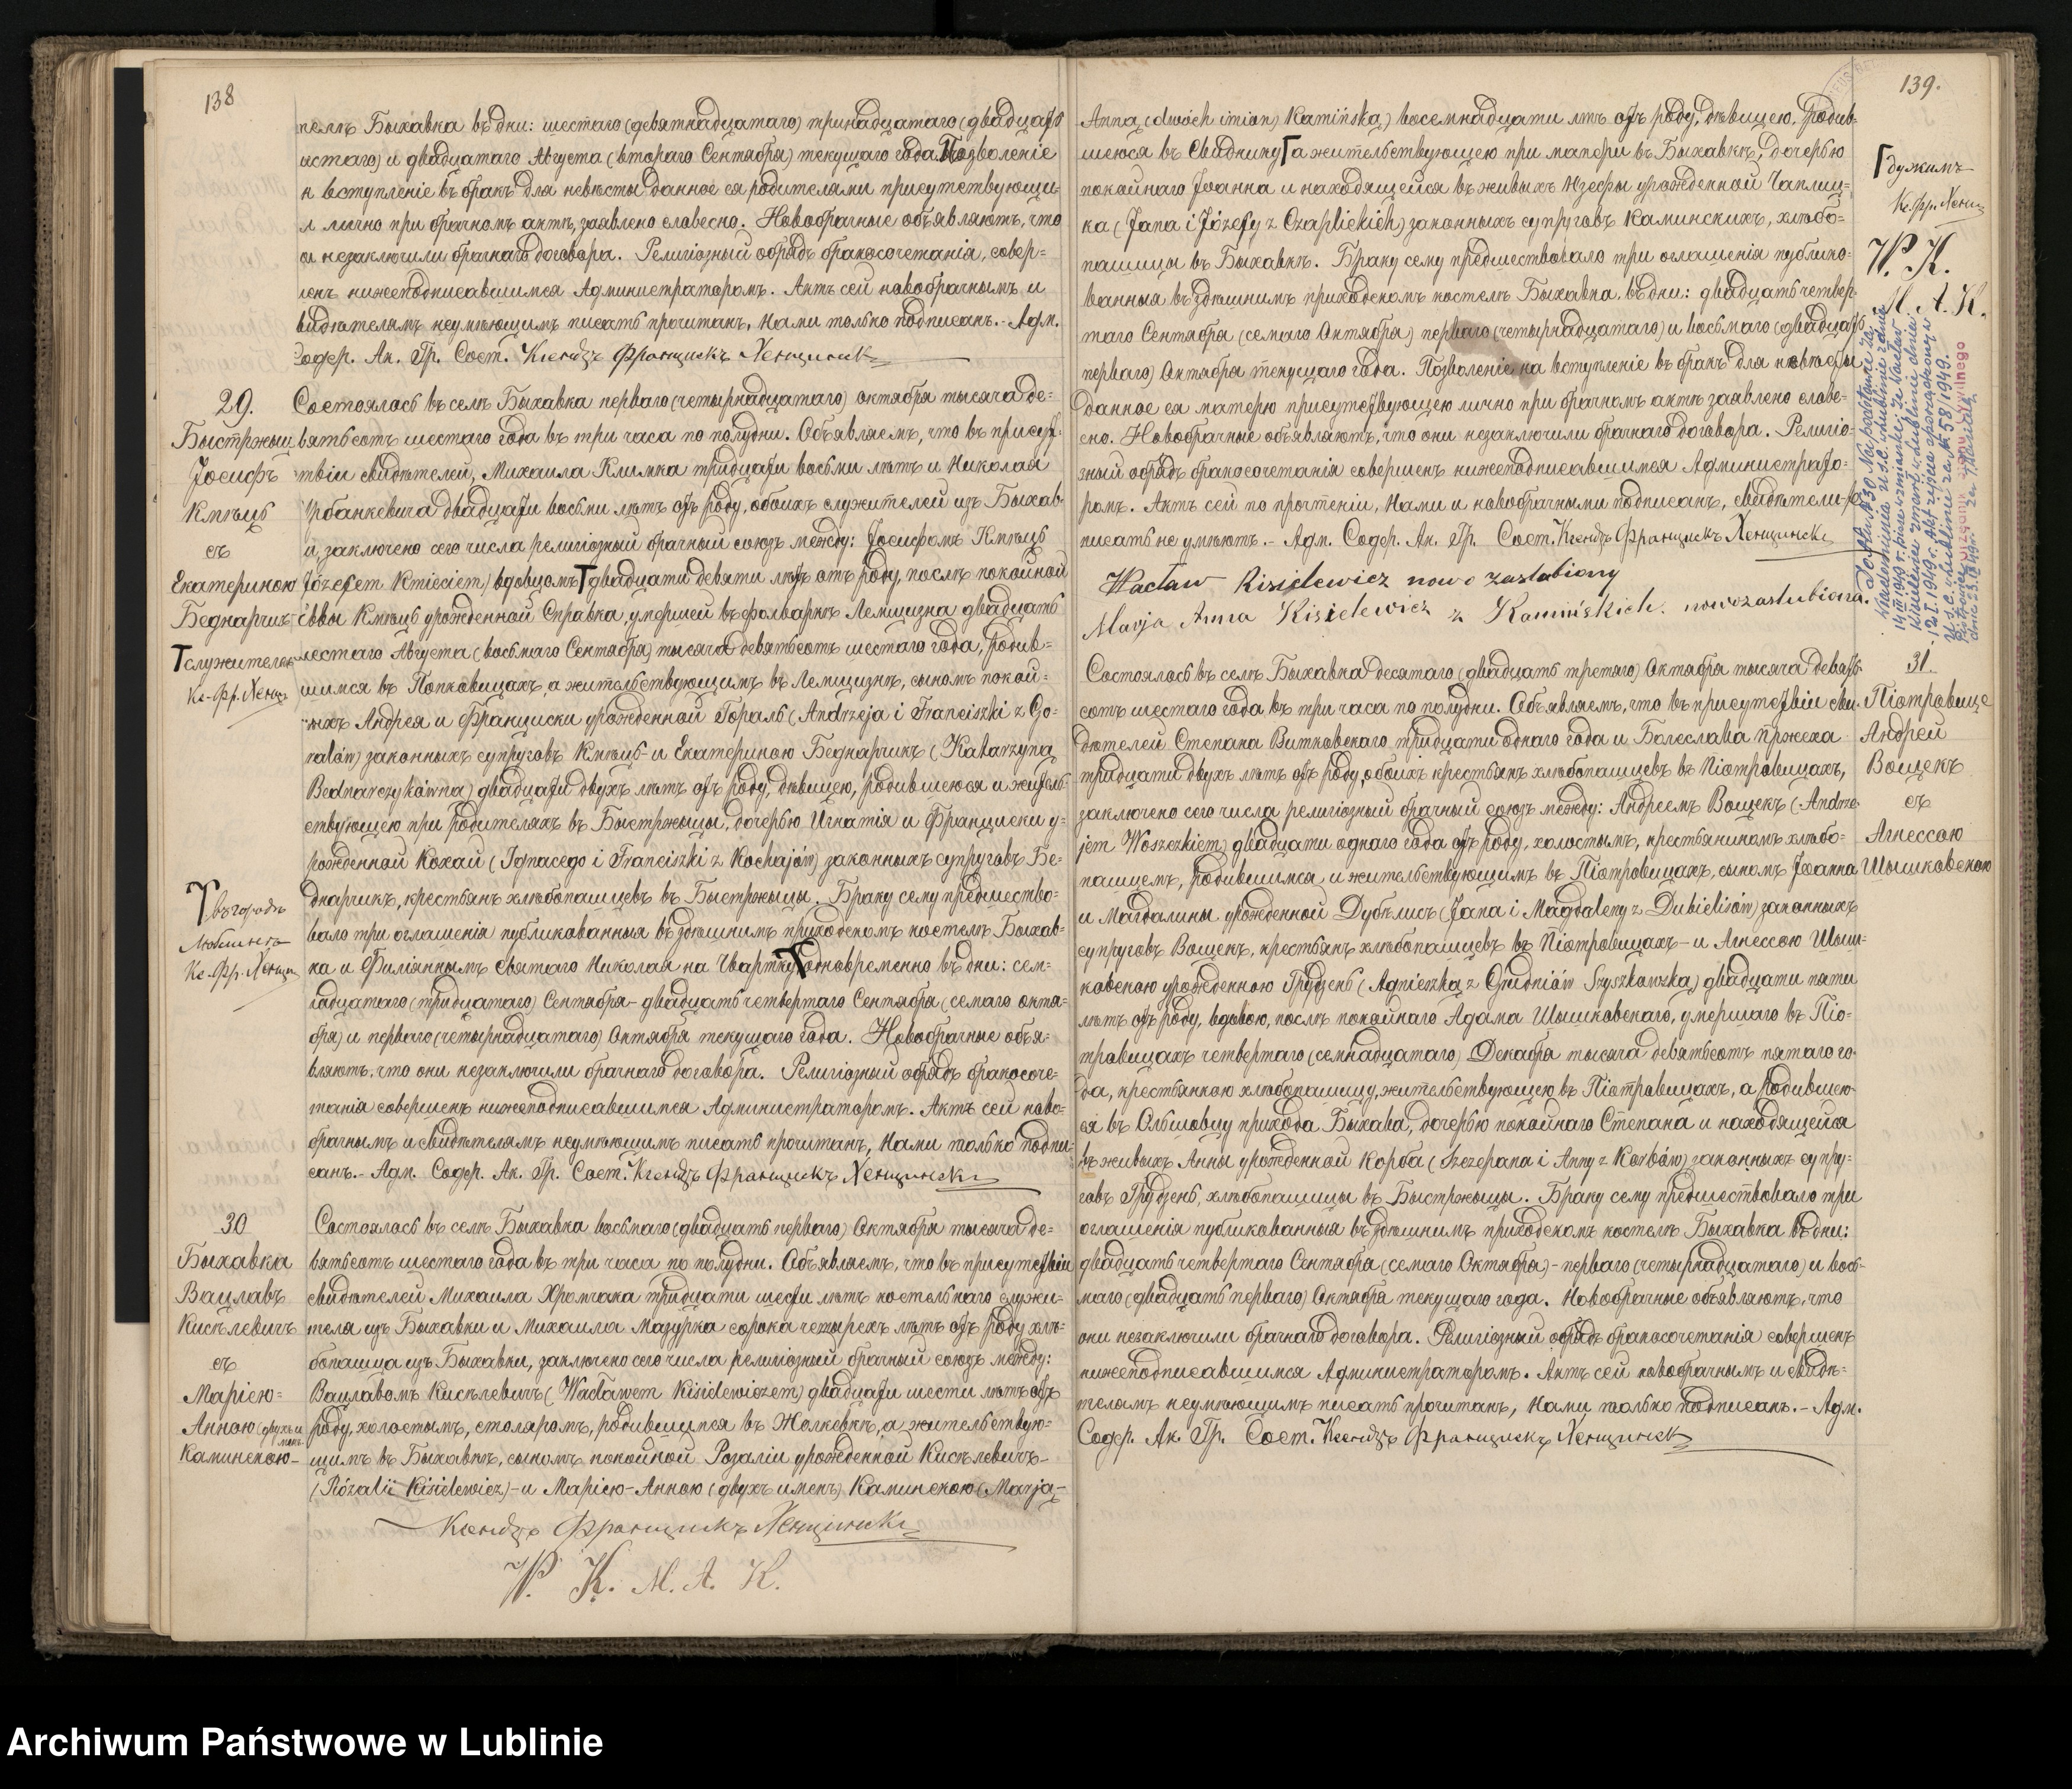 138
пелѣ Быхавка въ дни: шестаго (девятнадцатаго) тринадцатаго (двадцать
шестаго) и двадцатаго Августа (втораго Сентября) текущаго года. Позволеніе
н вступленіе въ бракъ для невѣсты данное ея родителями присутствующи-
и лично при брачномъ актѣ, заявлено словесно. Новобрачные объявляютъ, что
и незаключили брачнаго договора. Религіозный обрядъ бракосочетанія, совер-
шенъ нижеподписавшимся Администраторомъ. Актъ сей новобрачнымъ и
видѣтелямъ неумѣющимъ писать прочитанъ, Нами только подписанъ. - Адм.
Содер. Ак. Гр. Сост. Ксендзъ Францискъ Хенцинскі
29.
Быстржыц
Іосифъ
Кмѣць
съ
Екатериною
Беднарчик
служителемъ
Кс. Фр. Хенц.
Состоялось въ селѣ Быхавка перваго (четырнадцатаго) октября тысяча де-
вятьсотъ шестаго года въ три часа по полудни. Объявляемъ, что въ присут-
твіи свидѣтелей, Михаила Климка тридцати восьми лѣтъ и Николая
Урбанкевича двадцати восьми лѣтъ отъ роду, обоихъ служителей изъ Быхав-
и, заключено сего числа религіозный брачный союзъ между: Іосифомъ Кмѣць
(Józefem Kmieciem) вдовцомъ двадцати девяти лѣтъ отъ роду, послѣ покойной
Евы Кмѣць урожденной Справка, умершей въ фольваркѣ Лемщизна двадцать
шестаго Августа (восьмаго Сентября) тысяча девятьсотъ шестаго года, родив-
шимся въ Попковицахъ, а жительствующимъ въ Лемщизнѣ, сыномъ покой-
ныхъ Андрея и Франциски урожденной Гораль (Andrzeja i Franciszki z Go-
ralów) законныхъ супруговъ Кмѣць - и Екатериною Беднарчикъ (Katarzyną
Bednarczykówną) двадцати двухъ лѣтъ отъ роду, дѣвицею, родившеюся и житель-
ствующею при родителяхъ въ Быстржыцы, дочерью Игнатія и Франциски у-
рожденной Кохай (Ignacego i Franciszki z Kochajów) законныхъ супруговъ Бе-
днарчикъ, крестьянъ хлѣбопашцевъ въ Быстржыцы. Браку сему предшество-
вало три оглашенія публикованныя въ здѣшнимъ приходскомъ костелѣ Быхав-
ка и Филіяннымъ Святаго Николая на Чвартку одновременно въ дни: сем-
надцатаго (тридцатаго) Сентября - двадцать четвертаго Сентября (семаго октя-
бря) и перваго (четырнадцатаго) Октября текущаго года. Новобрачные объя-
вляютъ, что они незаключили брачнаго договора. Религіозный обрядъ бракосоче-
танія совершенъ нижеподписавшимся Администраторомъ. Актъ сей ново-
брачнымъ и свидѣтелямъ неумѣющимъ писать прочитанъ, Нами только подпи-
санъ. - Адм. Содер. Ак. Гр. Сост. Ксендзъ Францискъ Хенцинскі
въ городѣ
Люблинѣ
Кс. Фр. Хенцин
30
Быхавка
Вацлавъ
Кисѣлевичъ
съ
Маріею-
Анною (двухъ и
менъ)
Каминскою-
Состоялось въ селѣ Быхавка восьмаго (двадцать перваго) Октября тысяча де-
вятьсотъ шестаго года въ три часа по полудни. Объявляемъ, что въ присутствіи
свидѣтелей Михаила Хромчака тридцати шести лѣтъ костельнаго служи-
теля изъ Быхавки и Михаила Мазурка сорока четырехъ лѣтъ отъ роду хлѣ-
бопашца изъ Быхавки, заключено сего числа религіозный брачный союзъ между:
Вацлавомъ Кисѣлевичъ (Wacławem Kisielewiczem) двадцати шести лѣтъ отъ
роду, холостымъ, столяромъ, родившимся въ Жолкевкѣ, а жительствую-
щимъ въ Быхавкѣ, сыномъ покойной Розаліи урожденной Кисѣлевичъ-
(Rózalii Kisielewicz) - и Маріею-Анною (двухъ именъ) Каминскою (Marją-
Ксендзъ Францискъ Хенцинскі
W. K. M. A. K.
139.
Anną (dwóch imion) Kamińską) восемнадцати лѣтъ отъ роду, дѣвицею, родив-
шеюся въ Свиднику а жительствующею при матери въ Быхавкѣ, дочерью
покойнаго Іоанна и находящейся въ живыхъ Юзефы урожденной Чаплиц-
ка (Jana i Józefy z Czaplickich) законныхъ супруговъ Каминскихъ, хлѣбо-
пашицы въ Быхавкѣ. Браку сему предшествовало три оглашенія публико-
ванныя въ здѣшнимъ приходскомъ костелѣ Быхавка, въ дни: двадцать четвер-
таго Сентября (семаго Октября) перваго (четырнадцатаго) и восьмаго (двадцать
перваго) Октября текущаго года. Позволеніе на вступленіе въ бракъ для невѣсты
данное ея матерю присутствующею лично при брачномъ актѣ заявлено слове-
сно. Новобрачные объявляютъ, что они незаключили брачнаго договора. Религіо-
зный обрядъ бракосочетанія совершенъ нижеподписавшимся Администрато-
ромъ. Актъ сей по прочтеніи, Нами и новобрачными подписанъ, свидѣтели-то
писать не умѣютъ. - Адм. Содер. Ак. Гр. Сост. Ксендзъ Францискъ Хенцинскі
Wacław Kisielewicz nowo zaslubiony
Marja Anna Kisielewicz z Kamińskich. nowozaslubiona.
дужимъ
Кс. Фр. Хенц
W. K.
M. A. K.
Do aktu № 30 Na podstawie za-
wiadomienia U.S.C. w Lublinie z dnia
14 III 1949 r. pisze wzmiankę, że Wacław
Kisielewicz zmarł w Lublinie dnia
12. I. 1949 r. Akt zejścia sporządzony w
U.S.C. w Lublinie za № 58/1949.
31.
Піотровице
Андрей
Вощекъ
съ
Агнессою
Шышковскою
Состоялось въ селѣ Быхавка десятаго (двадцать третяго) Октября тысяча девять-
сотъ шестаго года въ три часа по полудни. Объявляемъ, что въ присутствіи сви-
дѣтелей Степана Витковскаго тридцати однаго года и Болеслава Пржеха
тридцати двухъ лѣтъ отъ роду, обоихъ крестьянъ хлѣбопашцевъ въ Піотровицахъ,
заключено сего числа религіозный брачный союзъ между: Андреемъ Вощекъ (Andrze-
jem Woszczkiem) двадцати однаго года отъ роду, холостымъ, крестьяниномъ хлѣбо-
пашцемъ, родившимся и жительствующимъ въ Піотровицахъ, сыномъ Іоанна
и Магдалины урожденной Дубѣлисъ (Jana i Magdaleny z Dubielisów) законныхъ
супруговъ Вощекъ, крестьянъ хлѣбопашцевъ въ Піотровицахъ - и Агнессою Шыш-
ковскою урожденною Грудзень (Agnieszką z Grudniów Szyszkowską) двадцати пяти
лѣтъ отъ роду, вдовою, послѣ покойнаго Адама Шышковскаго, умершаго въ Піо-
тровицахъ четвертаго (семнадцатаго) Декабря тысяча девятьсотъ пятаго го-
да, крестьянкою хлѣбопашицу, жительствующею въ Піотровицахъ, а родившею-
ся въ Ольшовцу прихода Быхава, дочерью покойнаго Степана и находящейся
въ живыхъ Анны урожденной Корба (Szczepana i Anny z Korbów) законныхъ супру-
говъ Грудзень, хлѣбопашицы въ Быстржыцы. Браку сему предшествовало три
оглашенія публикованныя въ здѣшнимъ приходскомъ костелѣ Быхавка въ дни:
двадцать четвертаго Сентября (семаго Октября) - перваго (четырнадцатаго) и вось-
маго (двадцать перваго) Октября текущаго года. Новобрачные объявляютъ, что
они незаключили брачнаго договора. Религіозный обрядъ бракосочетанія совершенъ
нижеподписавшимся Администраторомъ. Актъ сей новобрачнымъ и свидѣ-
телямъ неумѣющимъ писать прочитанъ, Нами только подписанъ. - Адм.
Содер. Ак. Гр. Сост. Ксендзъ Францискъ Хенцинскі
Archiwum Państwowe w Lublinie